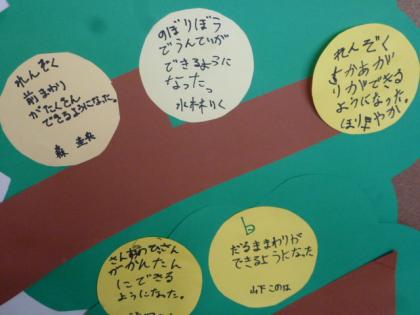 れんぞく
前まわり
がたくさん
できるようになった。
森
のぼりぼう
でうんていが
できるように
なったっ
水林りく
れんぞく
ちかあが
りができる
ようになった。
さん
がかんたん
にできる
ようになった。
b
だるままわりが
できるようになった
山下このは